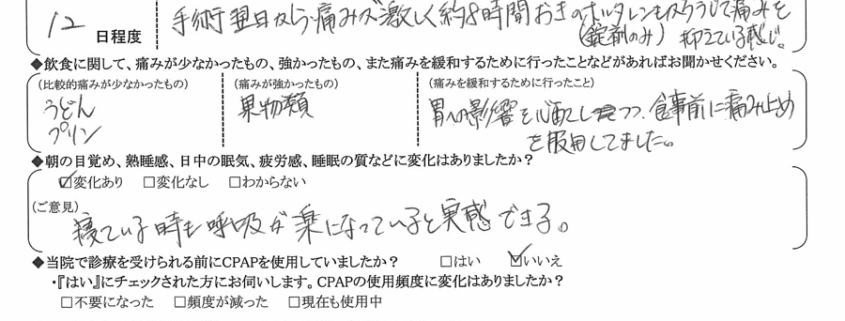 12 日程度
手術翌日から痛みが激しく約8時間おきのボルタレンをのうじて痛みを
(錠剤のみ) 抑えている感じ。
◆飲食に関して、痛みが少なかったもの、強かったもの、また痛みを緩和するために行ったことなどがあればお聞かせください。
(比較的痛みが少なかったもの) (痛みが強かったもの) (痛みを緩和するために行ったこと)
うどん 果物類 胃への影響を心配しつつ、食事前に痛み止め
プリン を服用してました。
◆朝の目覚め、熟睡感、日中の眠気、疲労感、睡眠の質などに変化はありましたか?
☑変化あり □変化なし □わからない
(ご意見)
寝ている時も呼吸が楽になっていると実感できる。
◆当院で診療を受けられる前にCPAPを使用していましたか? □はい ☑いいえ
・『はい』にチェックされた方にお伺いします。CPAPの使用頻度に変化はありましたか?
□不要になった □頻度が減った □現在も使用中